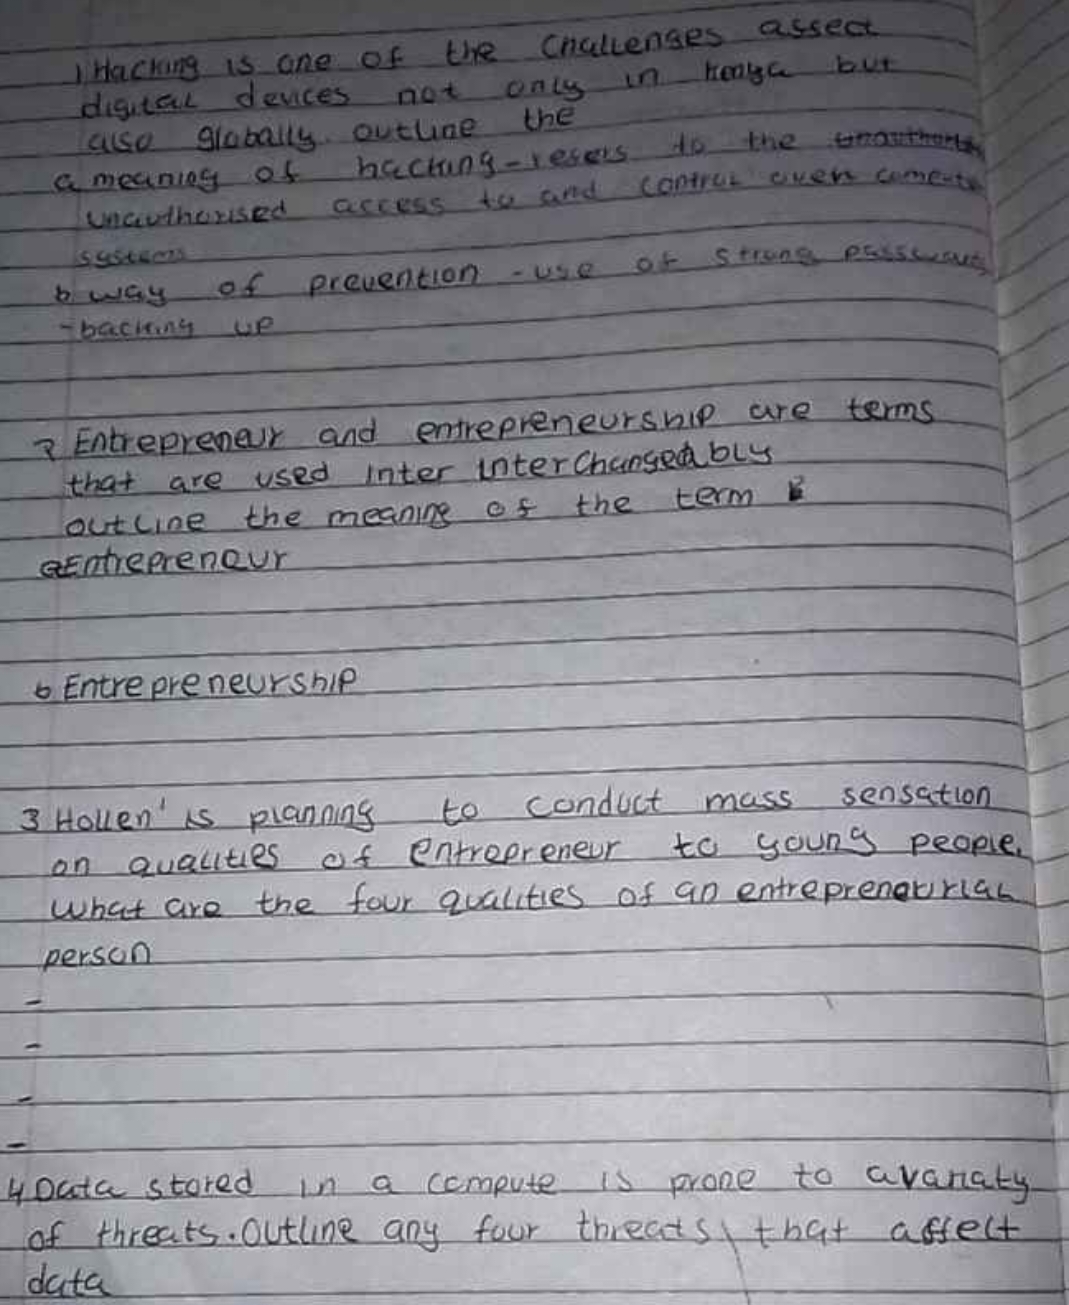 1 Hacking is one of the challenges assect
digital devices not only in kenya but
also globally. outline the
a meaning of hacking - resers to the unauthoris
unauthorised access to and control over
systems
b way of prevention - use of strong
- backing up
2 Entrepreneur and entrepreneurship are terms
that are used inter interchangeably
outline the meaning of the term
a Entreprenour
b Entrepreneurship
3 Hollen' is planning to conduct mass sensation
on qualities of entrepreneur to young people.
What are the four qualities of an entrepreneurial
person
-
-
-
-
4 Data stored in a compute is prone to avariaty
of threats. Outline any four threats that affect
data